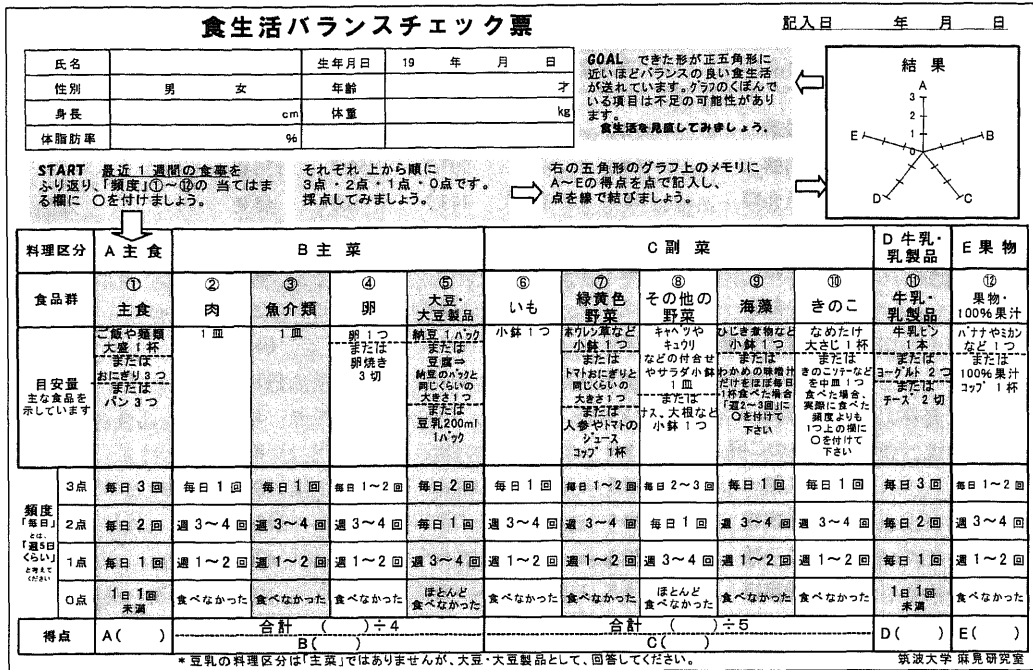 食生活バランスチェック票
記入日 年 月 日
氏名 生年月日 19 年 月 日
性別 男 女 年齢 才
身長 cm 体重 kg
体脂肪率 %
GOAL できた形が正五角形に
近いほどバランスの良い食生活
が送れています。グラフのくぼんで
いる項目は不足の可能性があり
ます。
食生活を見直してみましょう。
結果
A
3
2
1
0
E
B
D
C
START 最近1週間の食事を
ふり返り、「頻度」①~⑫の 当てはま
る欄に ○を付けましょう。
それぞれ 上から順に
3点・2点・1点・0点です。
採点してみましょう。
右の五角形のグラフ上のメモリに
A~Eの得点を点で記入し、
点を線で結びましょう。
料理区分 A 主食 B 主菜 C 副菜 D 牛乳・乳製品 E 果物
食品群
① 主食
② 肉
③ 魚介類
④ 卵
⑤ 大豆・大豆製品
⑥ いも
⑦ 緑黄色野菜
⑧ その他の野菜
⑨ 海藻
⑩ きのこ
⑪ 牛乳・乳製品
⑫ 果物・100%果汁
目安量
主な食品を
示しています
ご飯や麺類
大盛1杯
または
おにぎり3つ
または
パン3つ
1皿
1皿
卵1つ
または
卵焼き
3切
納豆1パック
または
豆腐⇒
納豆のパックと
同じくらいの
大きさ1つ
または
豆乳200ml
1パック
小鉢1つ
ホウレン草など
小鉢1つ
または
トマトおにぎりと
同じくらいの
大きさ1つ
または
人参やトマトの
ジュース
コップ1杯
キャベツや
キュウリ
などの付合せ
やサラダ小鉢
1皿
または
ナス、大根など
小鉢1つ
ひじき煮物など
小鉢1つ
または
わかめの味噌汁
だけをほぼ毎日
1杯食べた場合
「週2~3回」に
○を付けて
下さい
なめたけ
大さじ1杯
または
きのこソテーなど
を中皿1つ
食べた場合、
実際に食べた
頻度よりも
1つ上の欄に
○を付けて
下さい
牛乳ビン
1本
または
ヨーグルト2つ
または
チーズ2切
バナナやミカン
など1つ
または
100%果汁
コップ1杯
頻度
「毎日」
とは、
「週5日
くらい」
と考えて
ください
3点 毎日3回 毎日1回 毎日1回 毎日1~2回 毎日2回 毎日1回 毎日1~2回 毎日2~3回 毎日1回 毎日1回 毎日3回 毎日1~2回
2点 毎日2回 週3~4回 週3~4回 週3~4回 毎日1回 週3~4回 週3~4回 毎日1回 週3~4回 週3~4回 毎日2回 週3~4回
1点 毎日1回 週1~2回 週1~2回 週1~2回 週3~4回 週1~2回 週1~2回 週3~4回 週1~2回 週1~2回 毎日1回 週1~2回
0点 1日1回未満 食べなかった 食べなかった 食べなかった ほとんど食べなかった 食べなかった 食べなかった ほとんど食べなかった 食べなかった 食べなかった 1日1回未満 食べなかった
得点 A( ) 合計 ( )÷4 合計 ( )÷5 D( ) E( )
B( ) C( )
*豆乳の料理区分は「主菜」ではありませんが、大豆・大豆製品として、回答してください。
筑波大学 麻見研究室